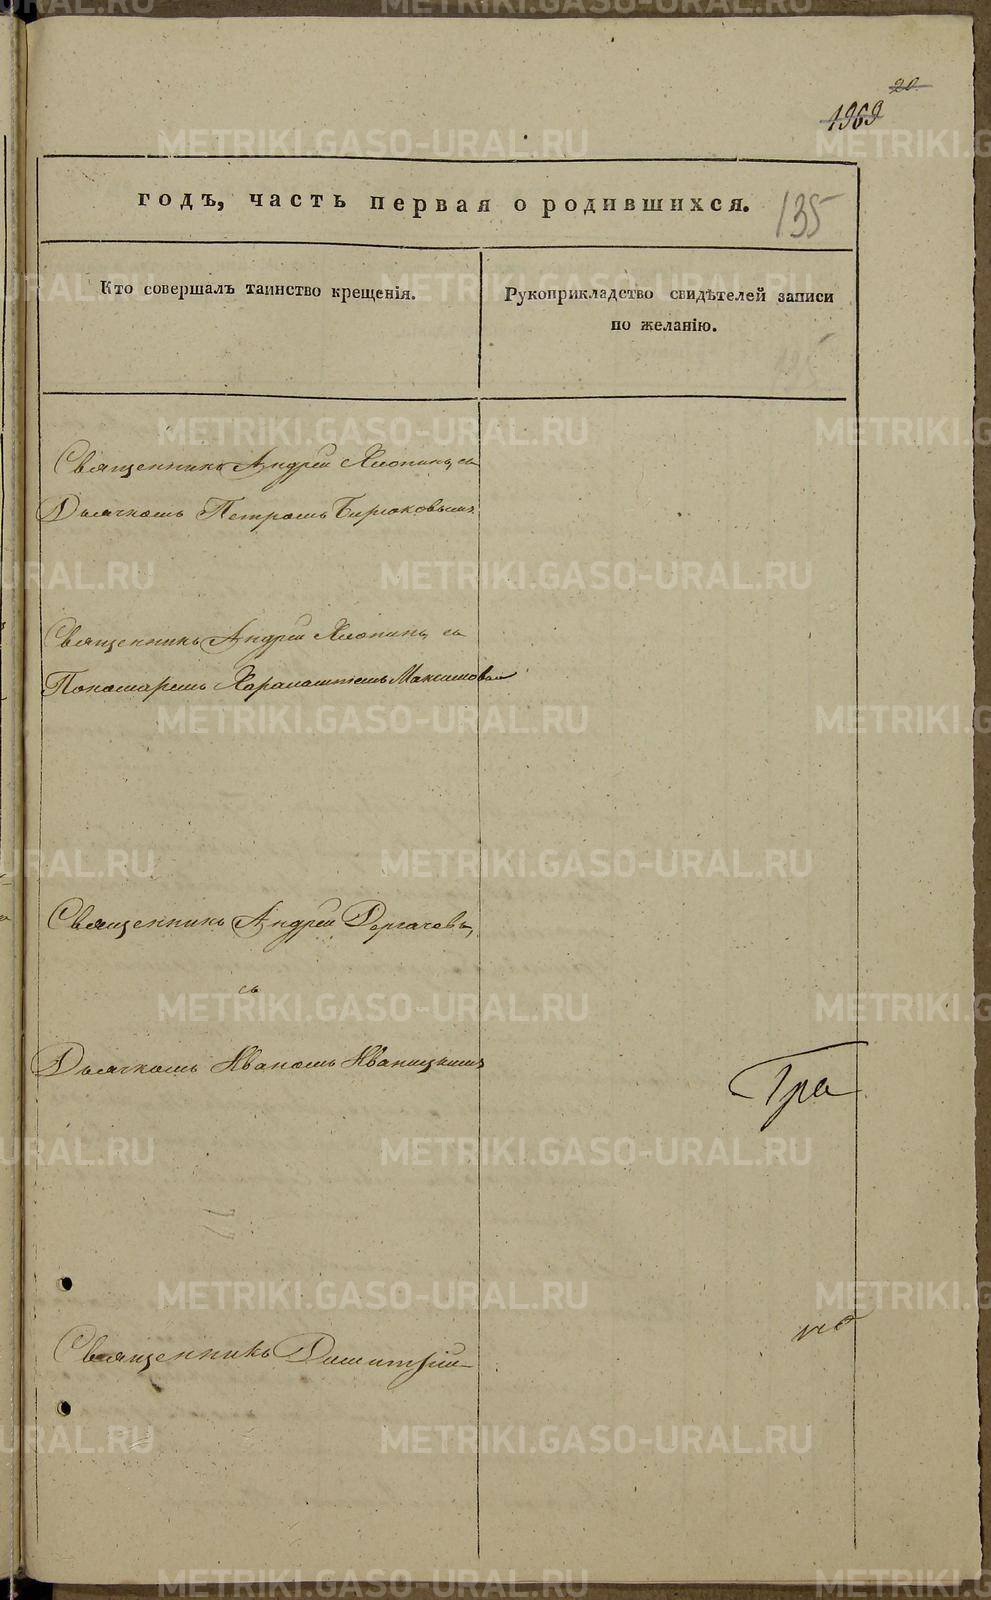 20
1969
годъ, часть первая о родившихся.
135
Кто совершалъ таинство крещенія.
Рукоприкладство свидѣтелей записи
по желанію.
Священникъ Андрей Хлопинъ, съ
Дьячкомъ Петромъ Бирюковымъ
Священникъ Андрей Хлопинъ, съ
Пономаремъ Харалампіемъ Максимовым
Священникъ Андрей Дергачевъ,
съ
Дьячкомъ Иваномъ Иваницкимъ
Гра
Священникъ Димитрій
METRIKI.GASO-URAL.RU